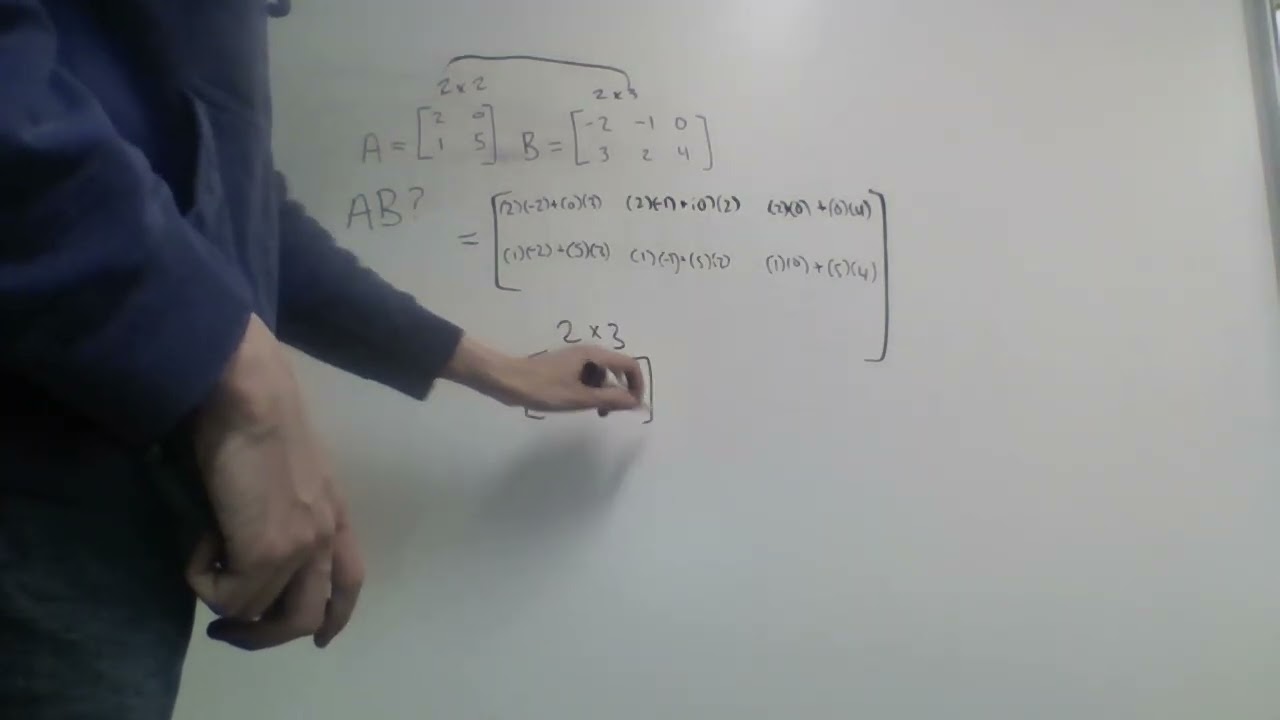 2 x 2 2 x 3
A = [ 2 0 B = [ -2 -1 0 ]
1 5 ] 3 2 4
AB?
= [ (2)(-2)+(0)(3) (2)(-1)+(0)(2) (2)(0)+(0)(4) ]
(1)(-2)+(5)(3) (1)(-1)+(5)(2) (1)(0)+(5)(4)
2 x 3
[ ]